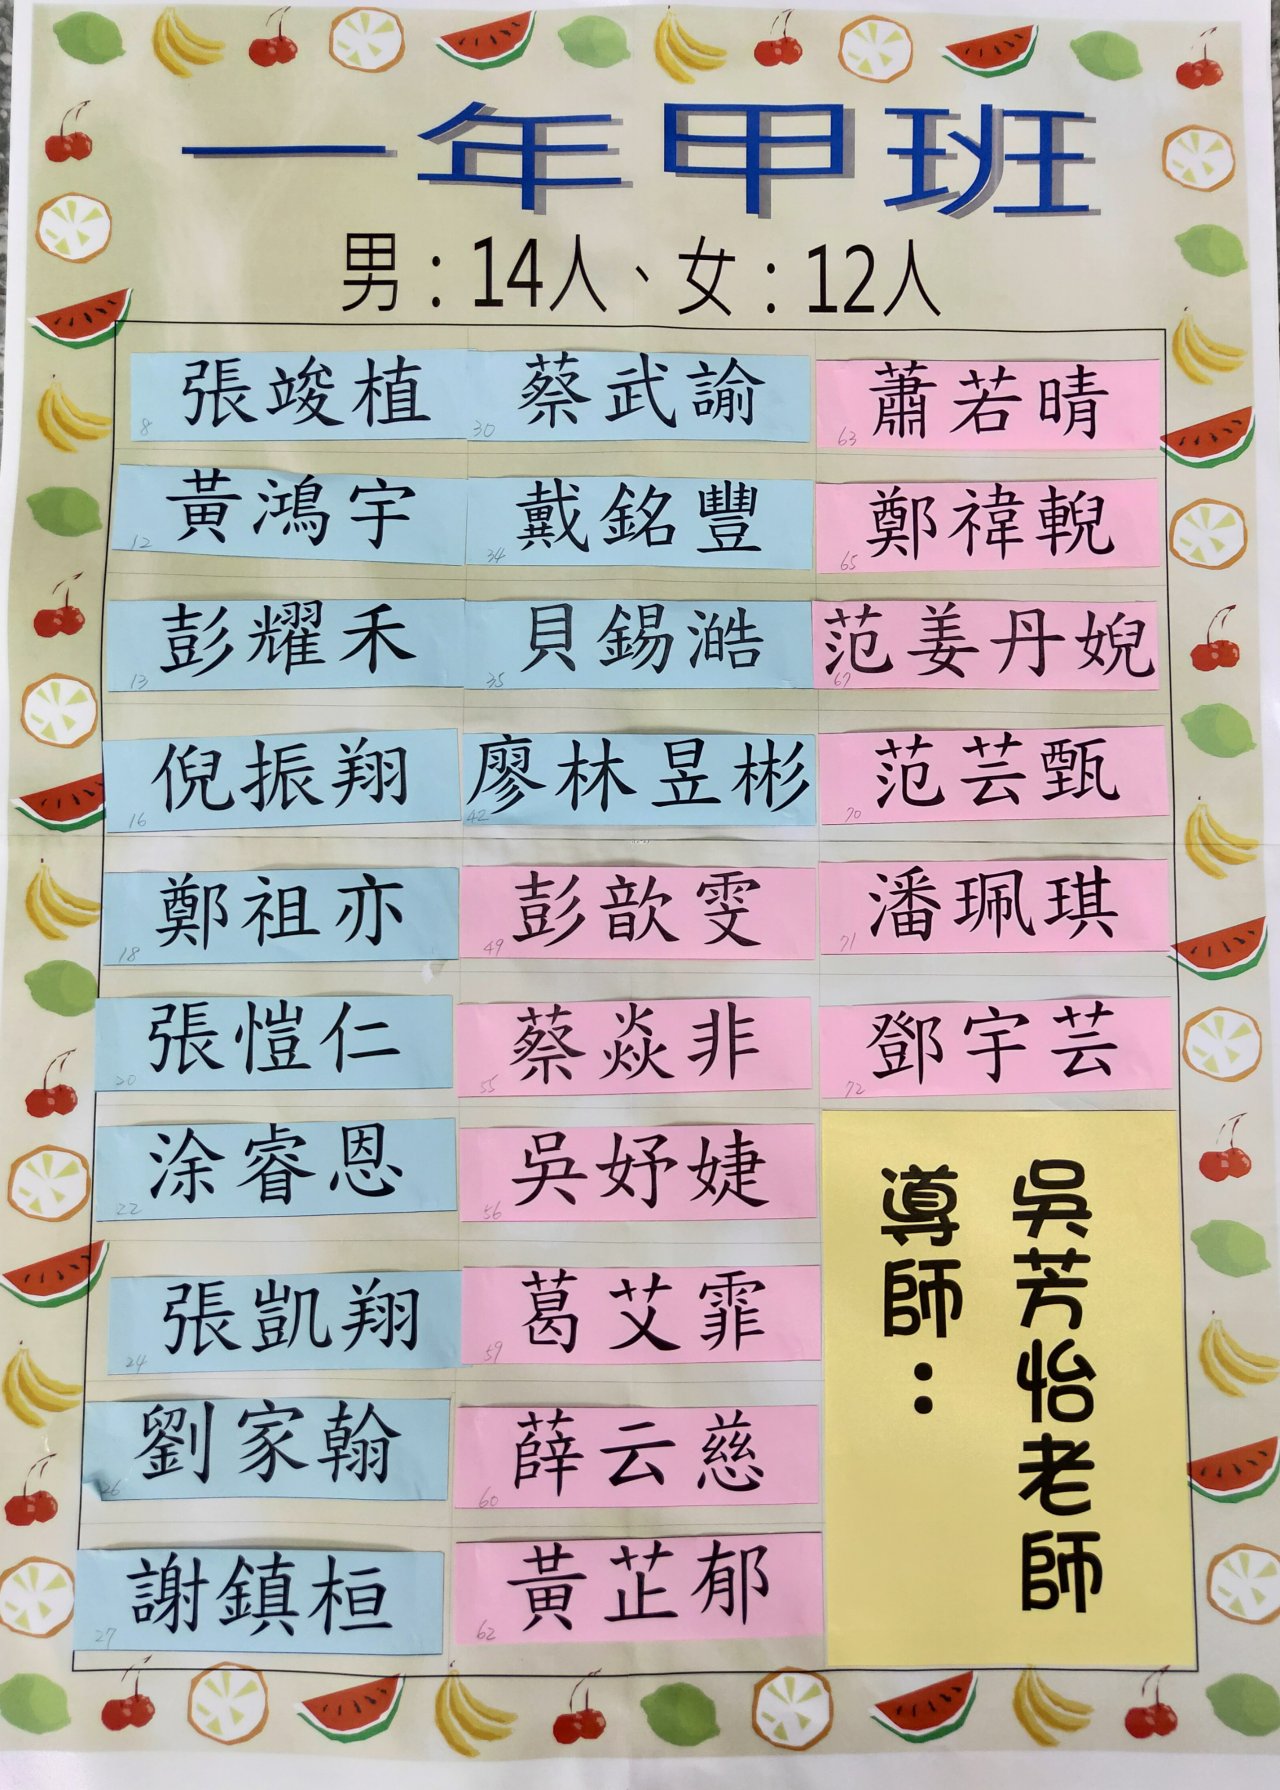 一年甲班
男：14人、女：12人
張竣植 8
黃鴻宇 12
彭耀禾 13
倪振翔 16
鄭祖亦 18
張愷仁 20
涂睿恩 22
張凱翔 24
劉家翰 26
謝鎮桓 27
蔡武諭 30
戴銘豐 34
貝錫澔 35
廖林昱彬 42
彭歆雯 49
蔡焱非 55
吳妤婕 56
葛艾霏 59
薛云慈 60
黃芷郁 62
蕭若晴 63
鄭禕輗 65
范姜丹婗 67
范芸甄 70
潘珮琪 71
鄧宇芸 72
導師：
吳芳怡老師